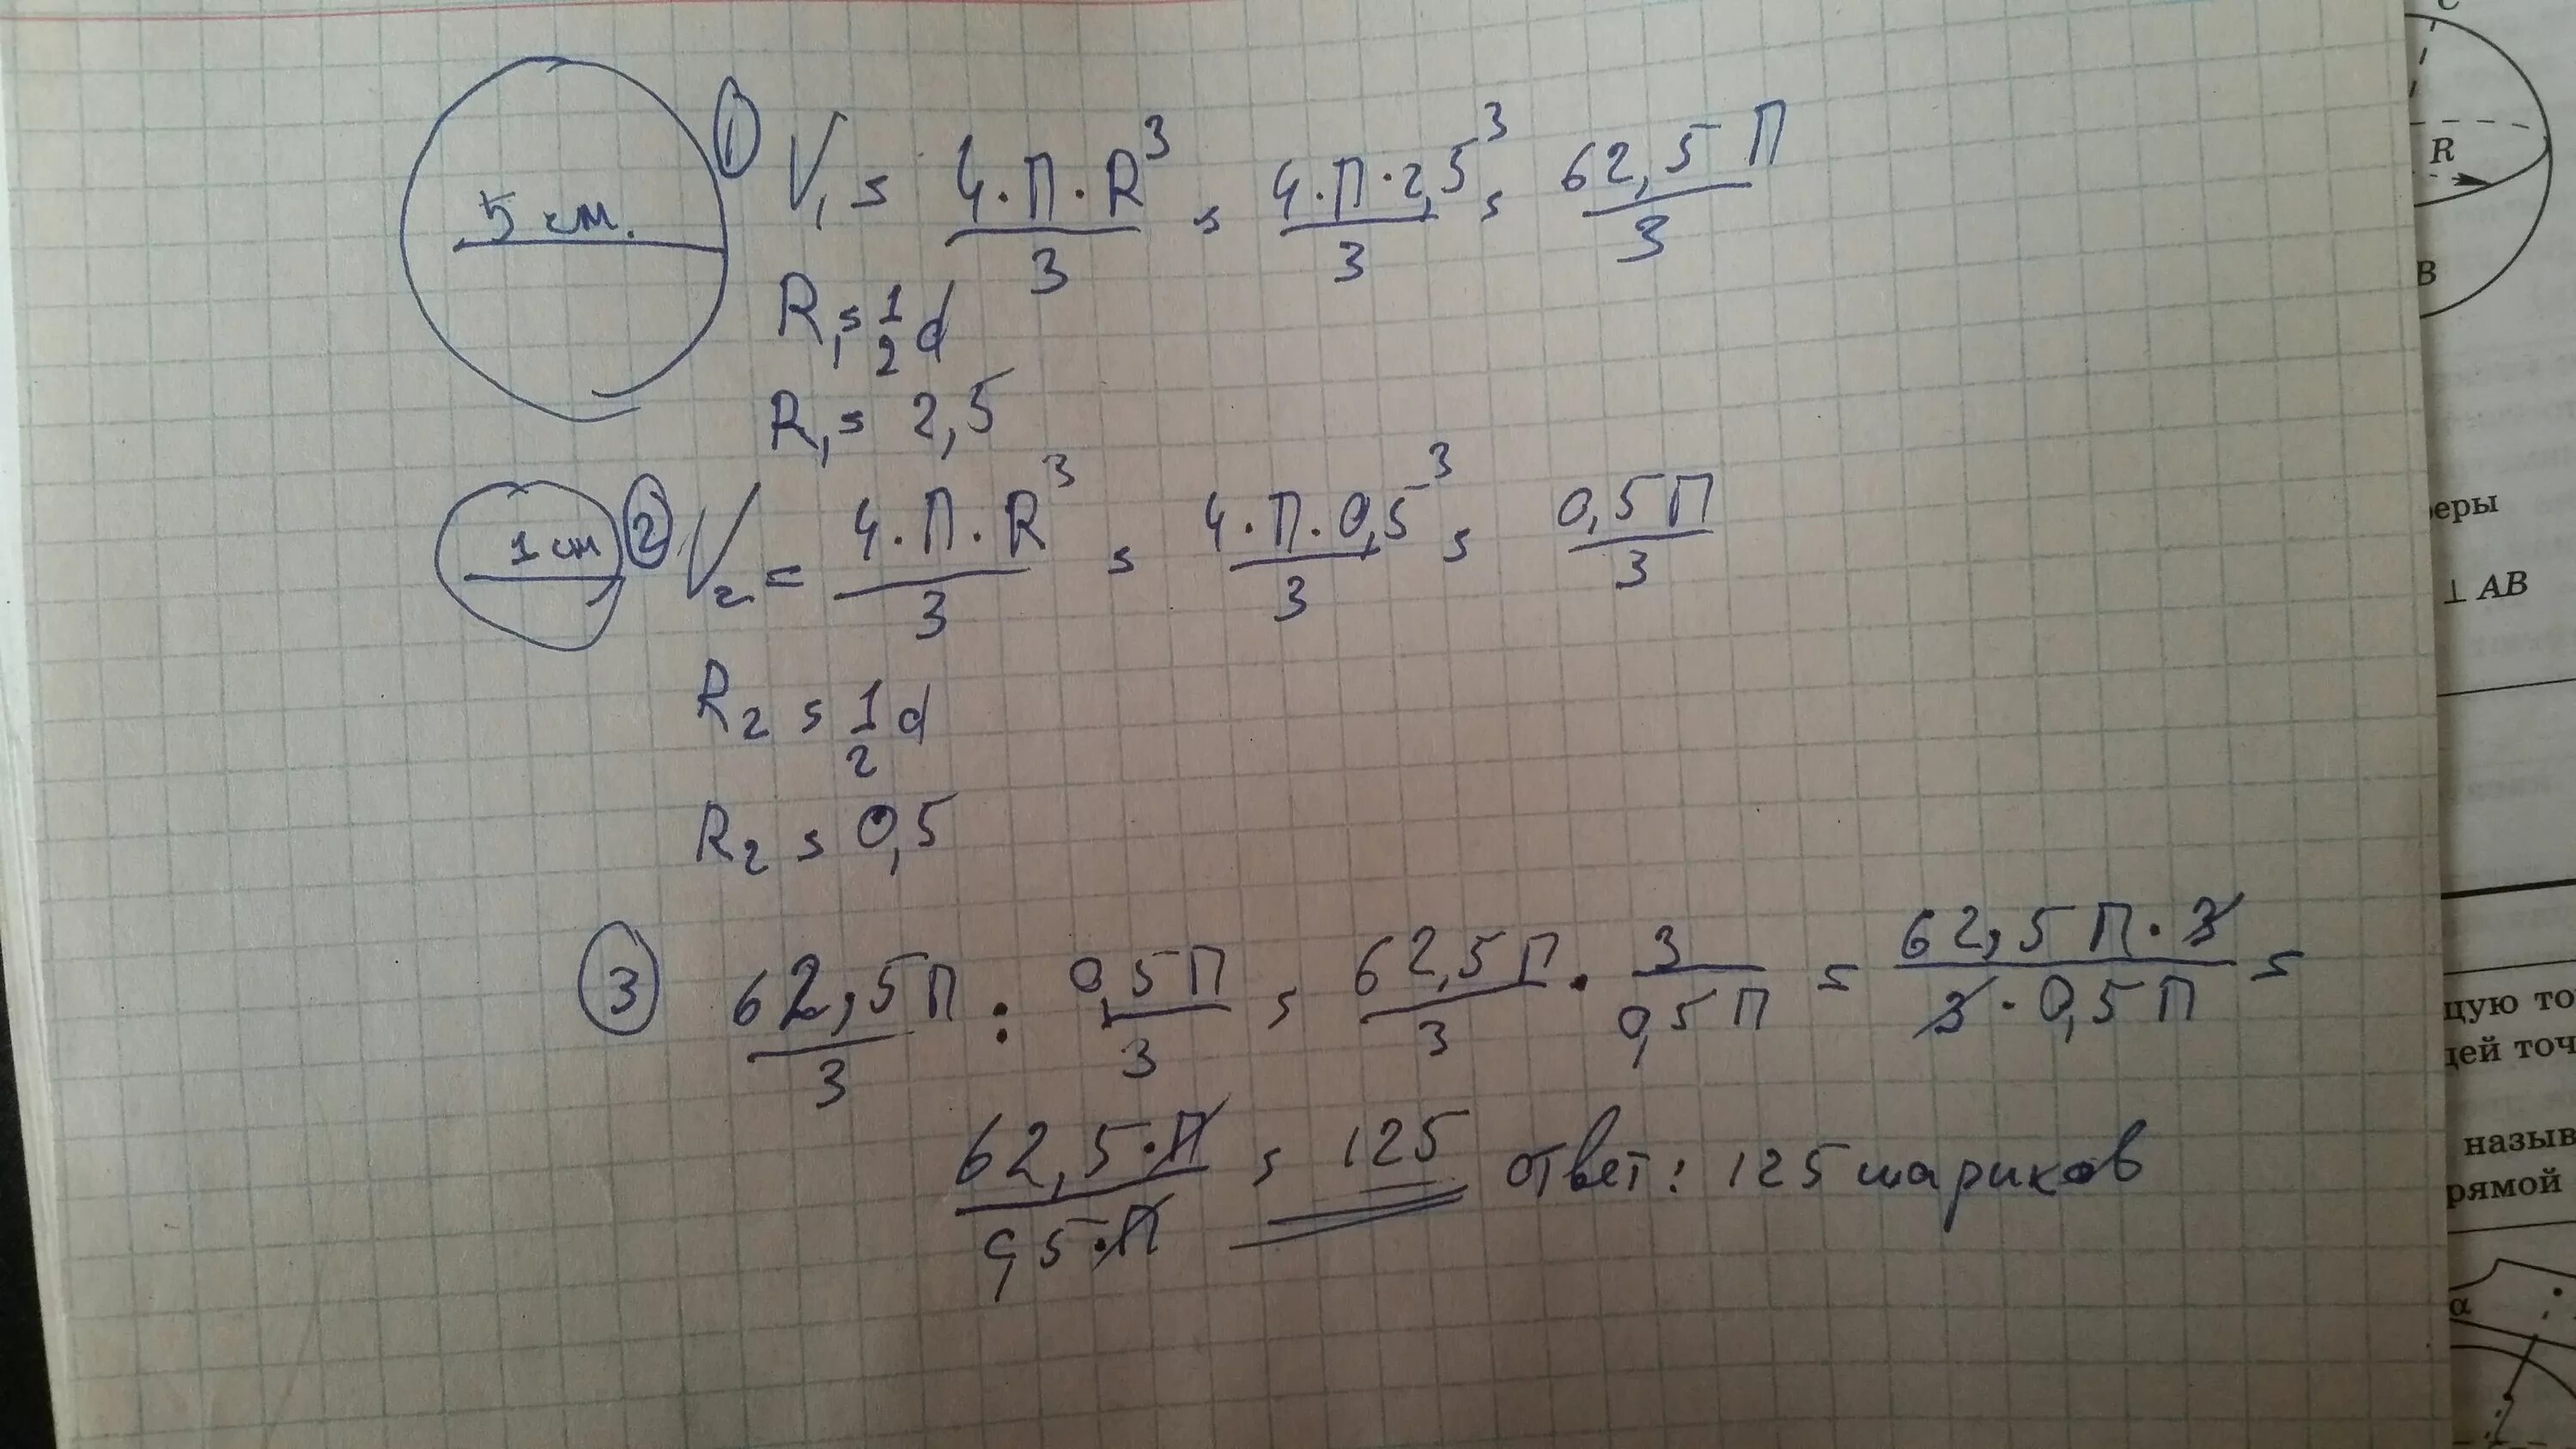 5 см.
① V₁ = 4·П·R³/3 = 4·П·2,5³/3 = 62,5П/3
R₁ = 1/2 d
R₁ = 2,5
1 см
② V₂ = 4·П·R³/3 = 4·П·0,5³/3 = 0,5П/3
R₂ = 1/2 d
R₂ = 0,5
③ 62,5П/3 : 0,5П/3 = 62,5П/3 · 3/0,5П = 62,5П·3/3·0,5П =
62,5·П/0,5·П = 125 ответ: 125 шариков
C
R
B
⊥ AB
α